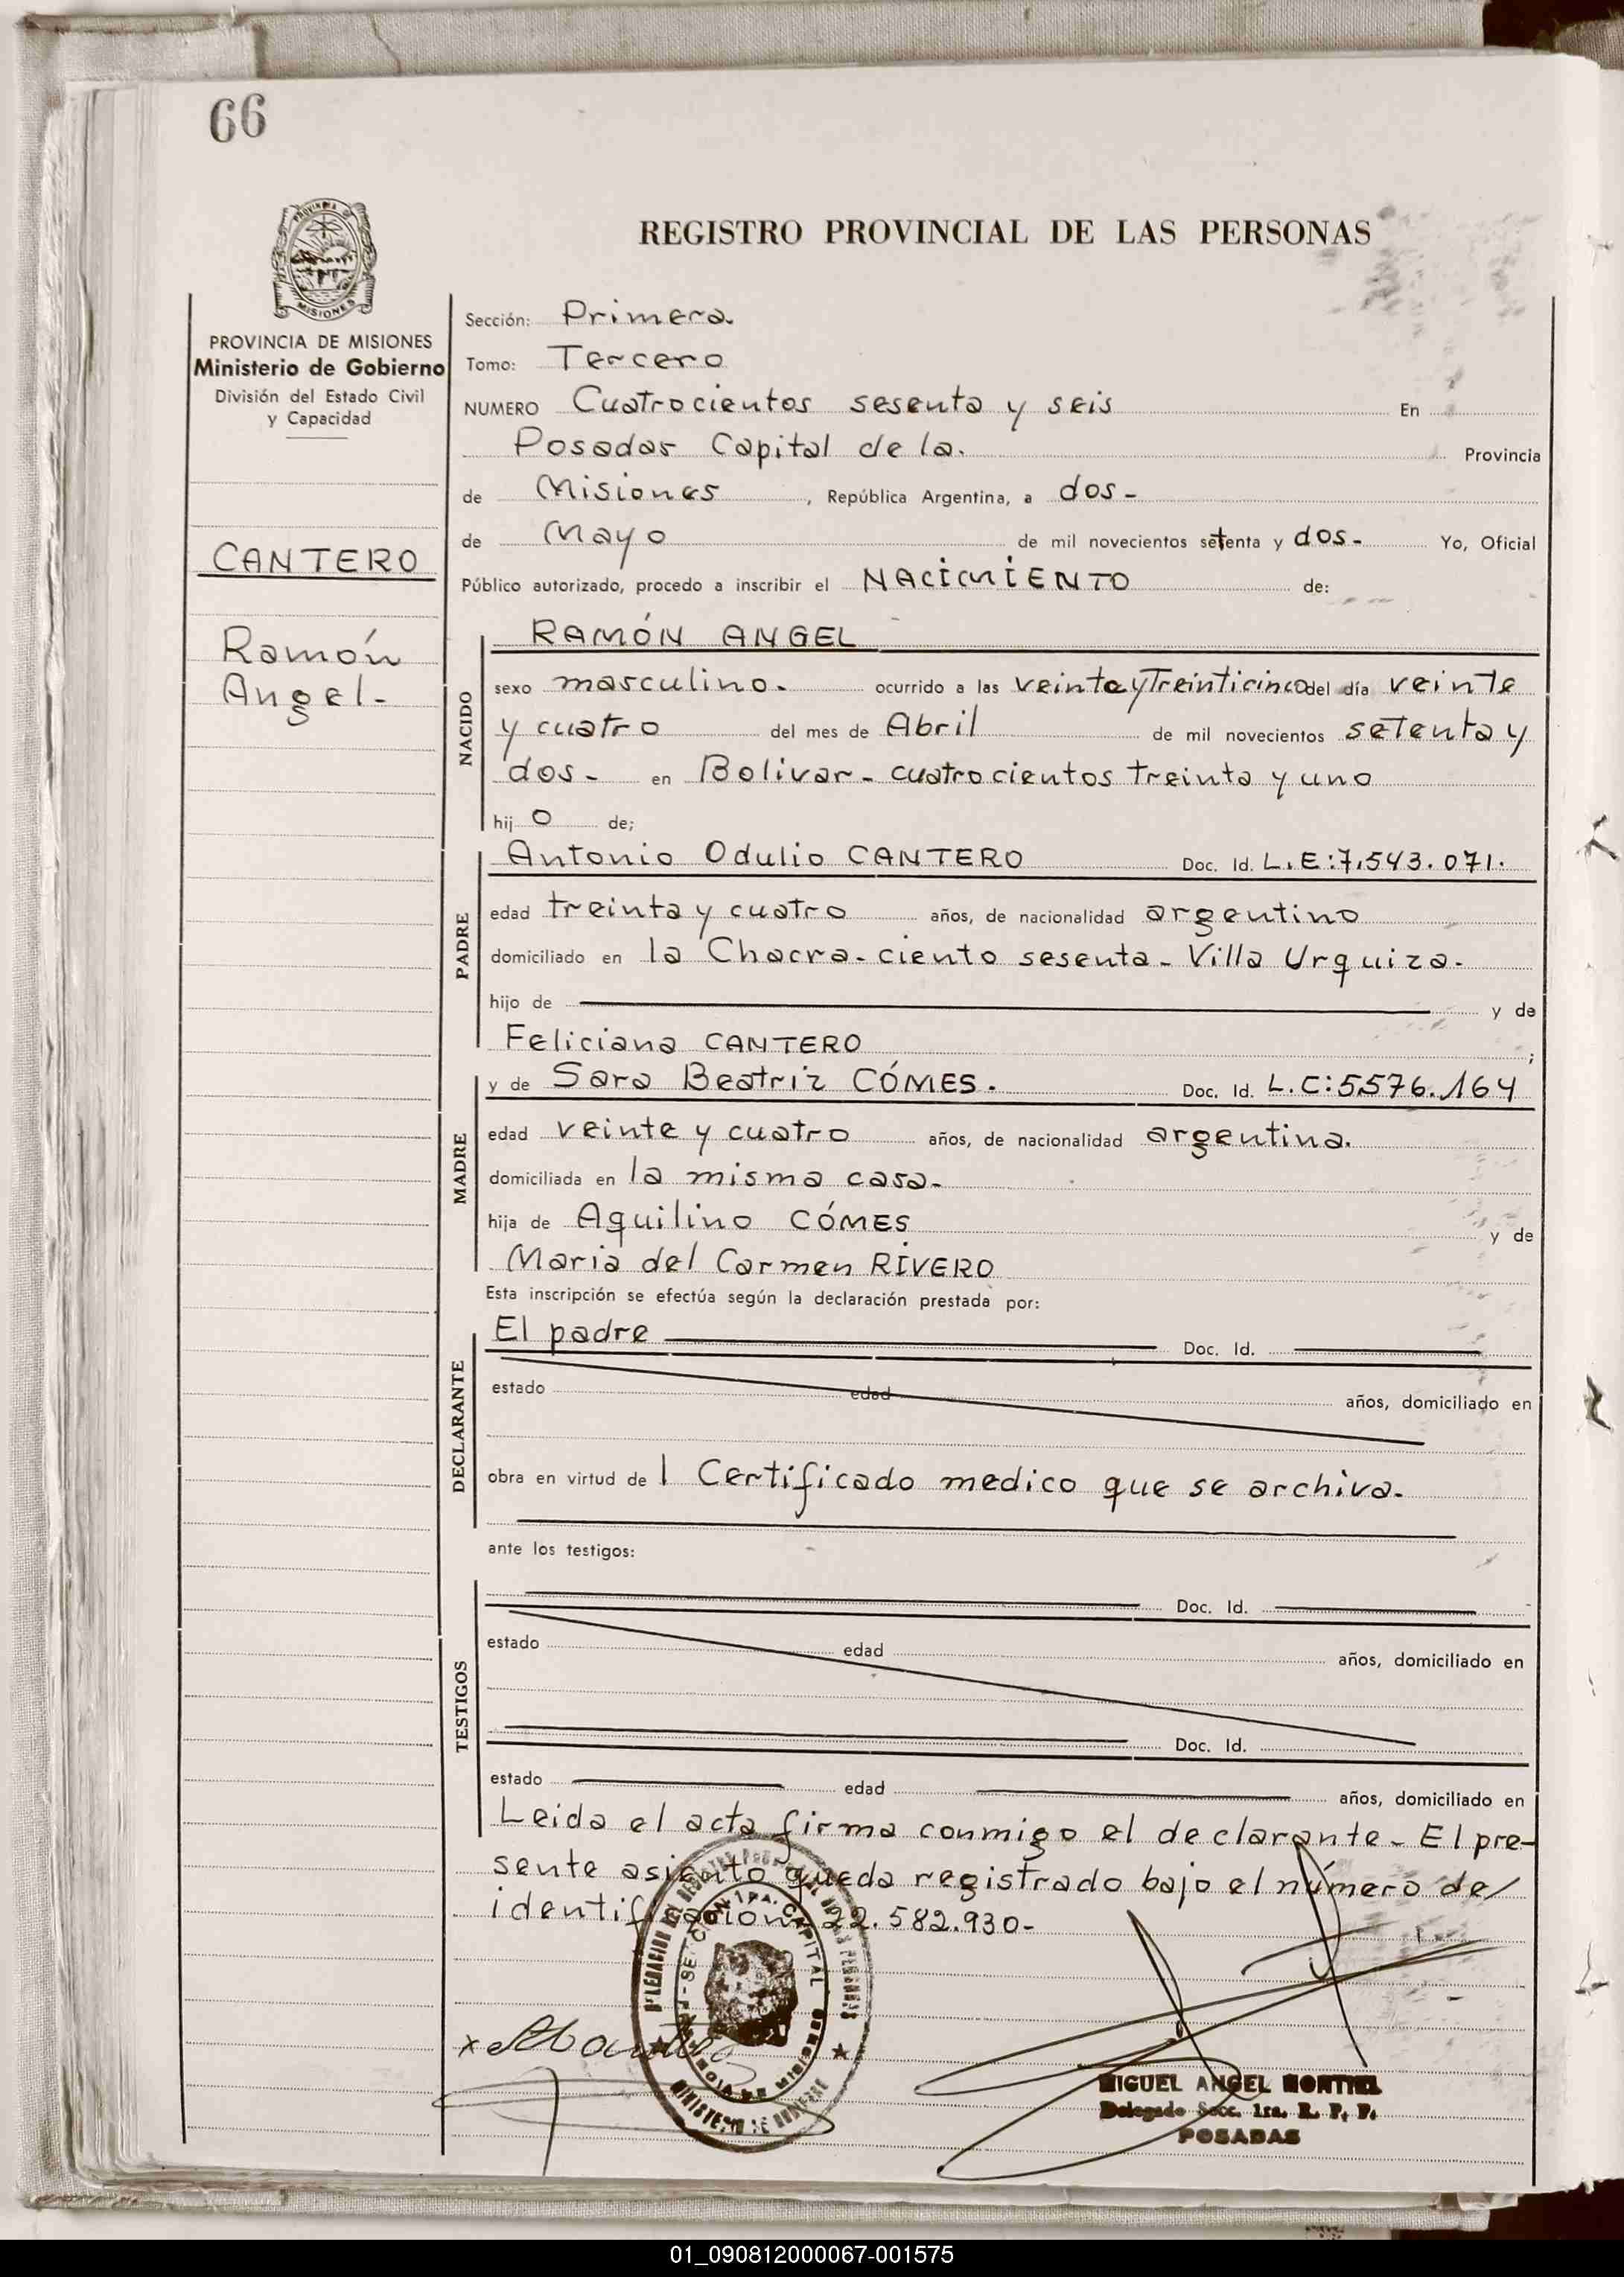 66
REGISTRO PROVINCIAL DE LAS PERSONAS
PROVINCIA DE MISIONES
Ministerio de Gobierno
División del Estado Civil
y Capacidad
CANTERO
Ramón
Angel-
Sección: Primera.
Tomo: Tercero
NUMERO Cuatrocientos sesenta y seis En
Posadas Capital de la. Provincia
de Misiones, República Argentina, a dos-
de Mayo de mil novecientos setenta y dos- Yo, Oficial
Público autorizado, procedo a inscribir el NACIMIENTO de:
NACIDO
RAMÓN ANGEL
sexo masculino. ocurrido a las veinte y Treinticinco del día veinte
y cuatro del mes de Abril de mil novecientos setenta y
dos- en Bolivar- cuatrocientos treinta y uno
hij o de;
PADRE
Antonio Odulio CANTERO Doc. Id. L.E:7.543.071.
edad treinta y cuatro años, de nacionalidad argentino
domiciliado en la Chacra-ciento sesenta- Villa Urquiza-
hijo de y de
Feliciana CANTERO ;
MADRE
y de Sara Beatriz CÓMES. Doc. Id. L.C:5576.164
edad veinte y cuatro años, de nacionalidad argentina.
domiciliada en la misma casa-
hija de Aquilino CÓMES y de
Maria del Carmen RIVERO
Esta inscripción se efectúa según la declaración prestada por:
DECLARANTE
El padre Doc. Id.
estado edad años, domiciliado en
obra en virtud de l Certificado medico que se archiva-
ante los testigos:
TESTIGOS
Doc. Id.
estado edad años, domiciliado en
Doc. Id.
estado edad años, domiciliado en
Leida el acta firma conmigo el declarante- El pre-
sente asiento queda registrado bajo el número de/
identificación 22.582.930-
MIGUEL ANGEL MONTIEL
Delegado Secc. 1ra. R. P. P.
POSADAS
01_090812000067-001575